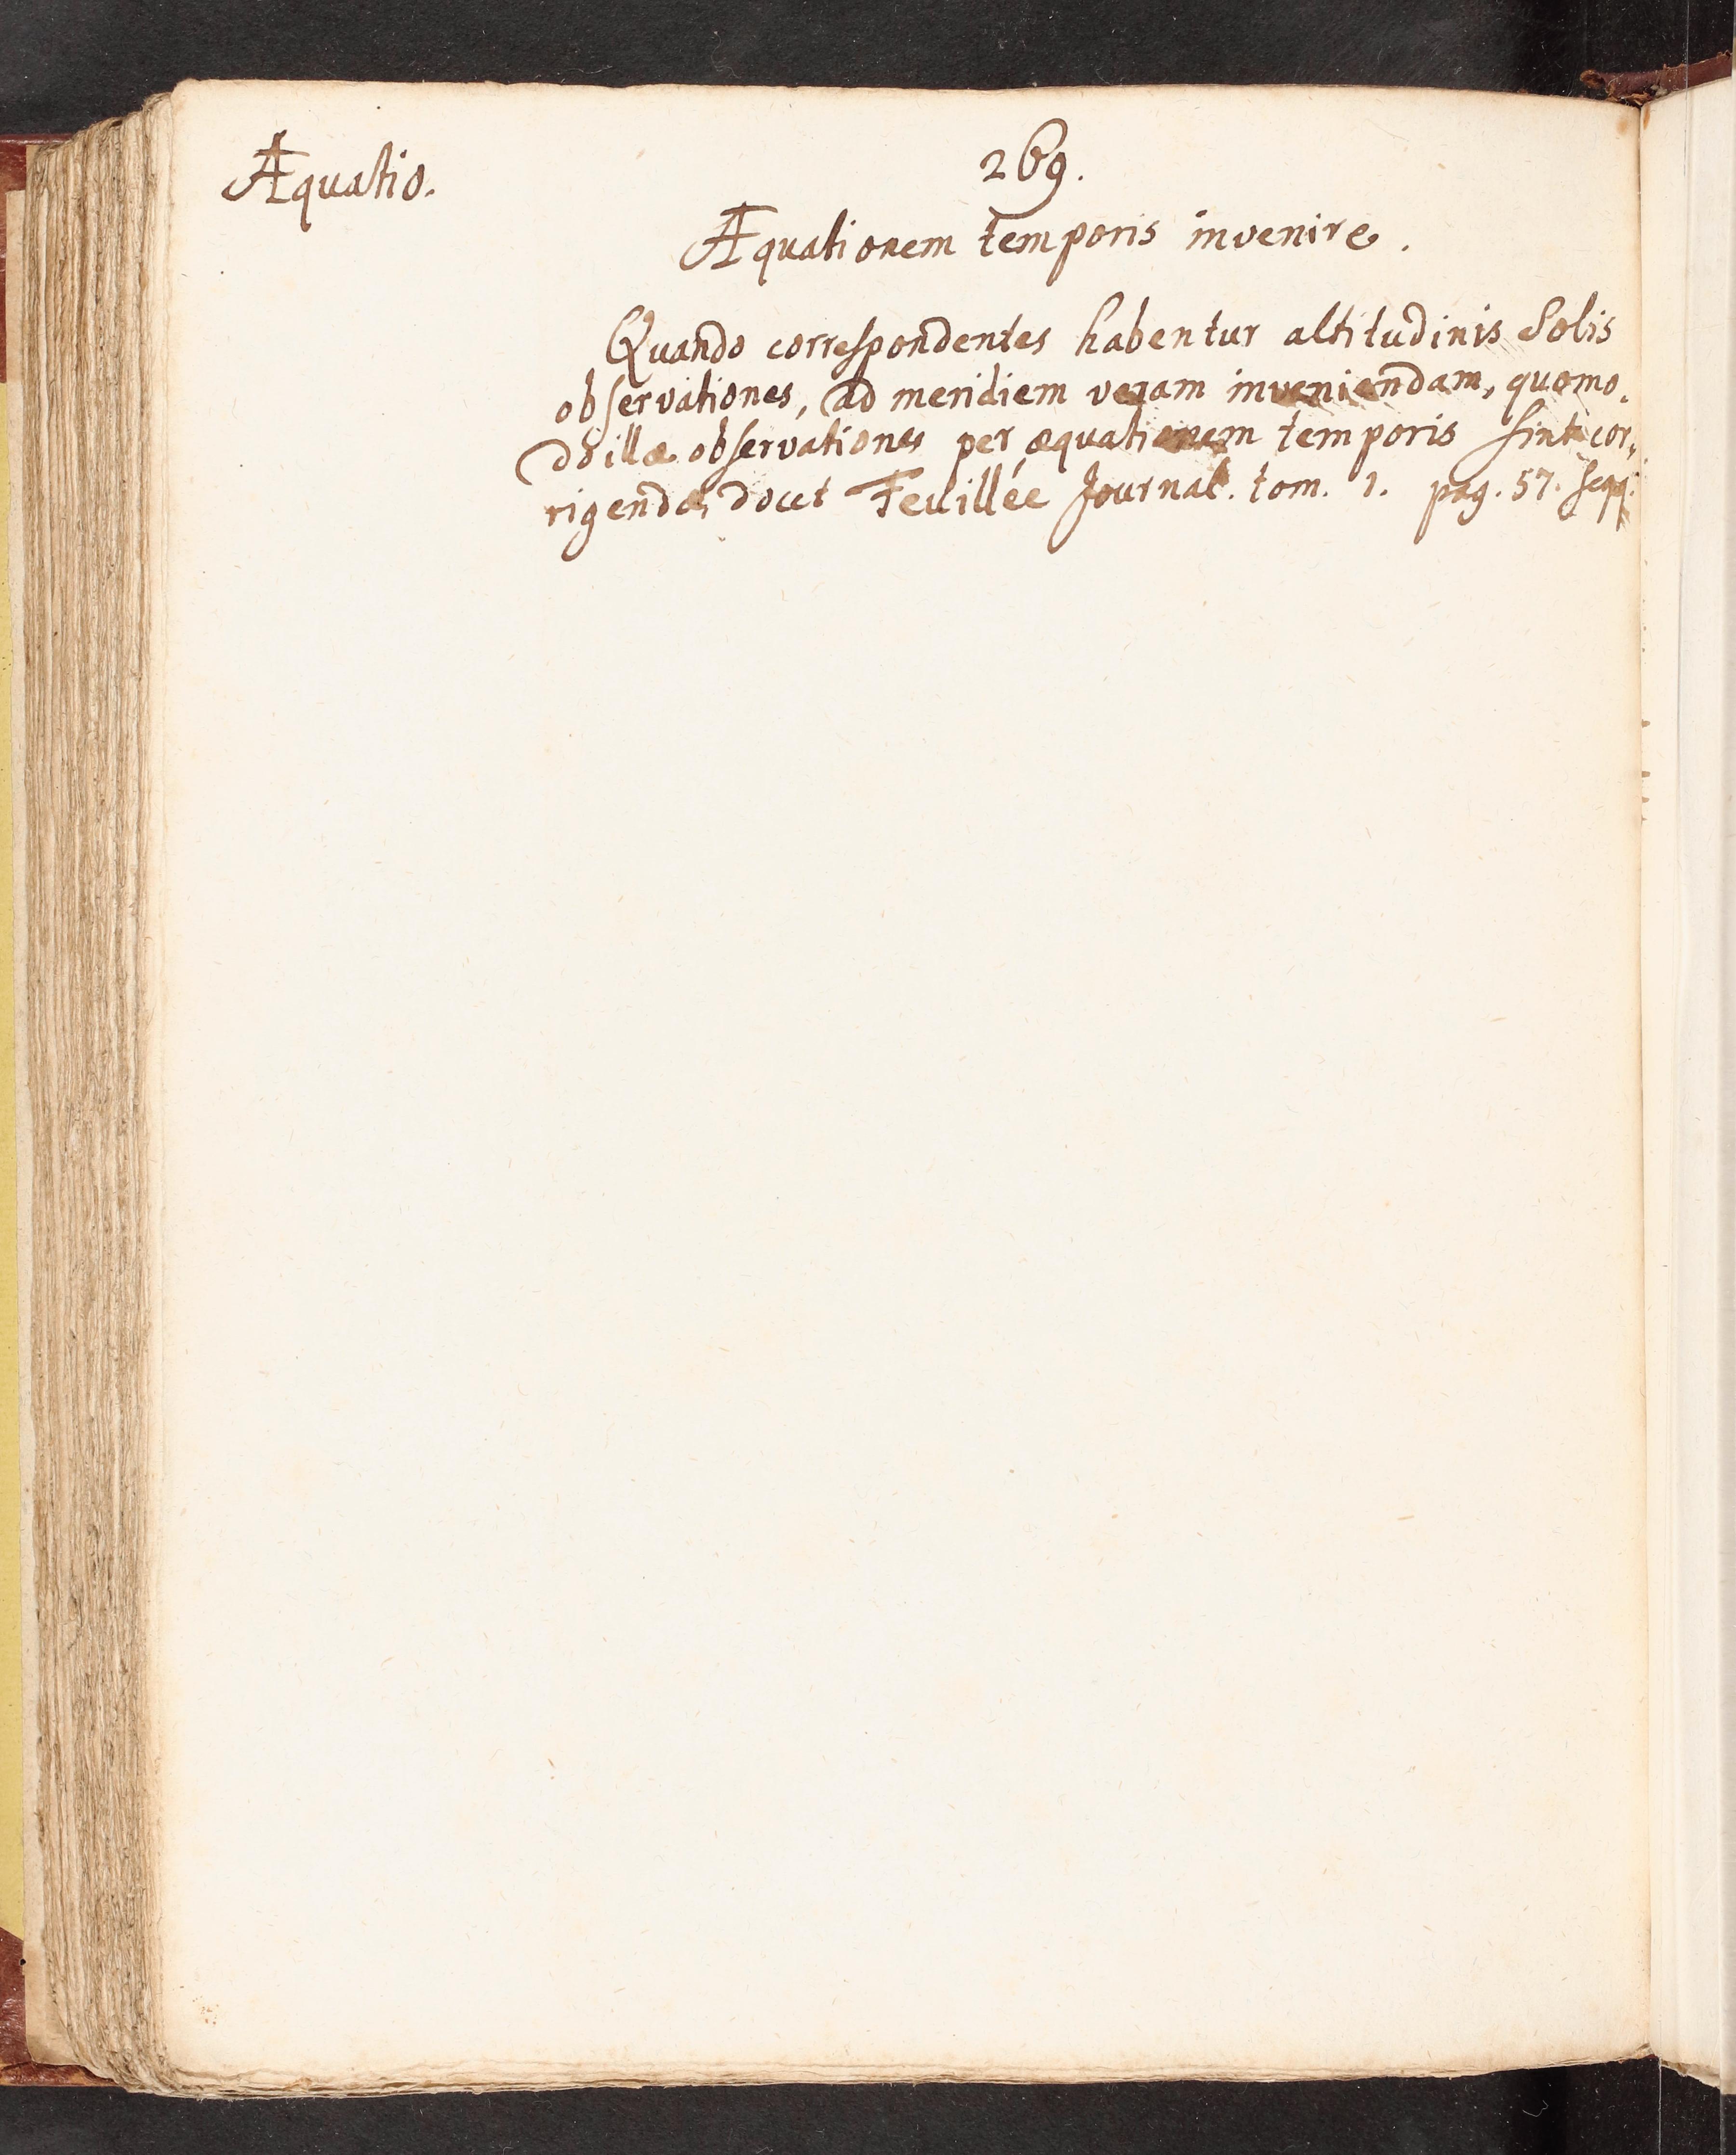 Æquatio.
269.
Æquationem temporis invenire.
Quando correſpondentes habentur altitudinis Solis
obſervationes, ad meridiem veram inveniendam, quomo-
do illæ obſervationes per æquationem temporis ſint cor-
rigendæ, docet Feuillée Journal. tom. 1. pag. 57. ſeqq.